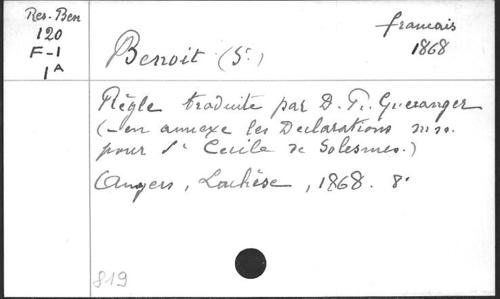 Res. Ben
120
F-1
1A
français
1868
Benoit (St)
Règle traduite par D. P. Gueranger
(- en annexe les Declarations mss.
pour Ste Cecile de Solesmes.)
Angers, Lachèse, 1868. 8°
819